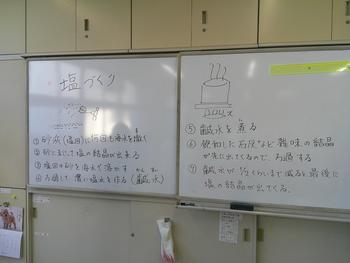 塩づくり
① 砂浜(塩田)に何回も海水を撒く
② 砂にまじって塩の結晶が出来る
③ 塩田の砂を海水で溶かす
④ ろ過して濃い塩水を作る(鹹水)
かん すい
⑤ 鹹水を煮る
⑥ 飽和した石灰など雑味の結晶
が先に出てくるので、ろ過する
⑦ 鹹水が 1/3くらいまで減ると最後に
塩の結晶が出てくる。